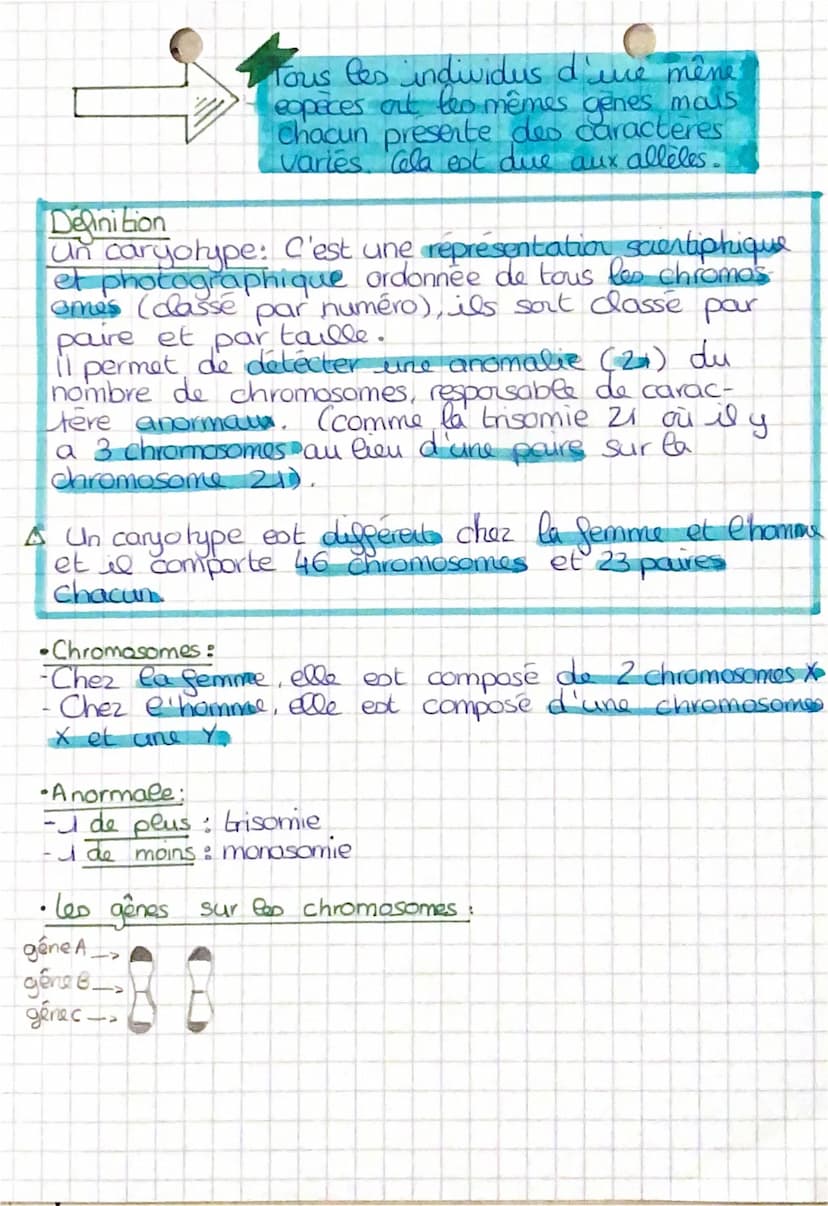 Tous les individus d'une même
espèces ont les mêmes gènes mais
chacun présente des caractères
variés. Cela est due aux allèles.
Définition
Un caryotype: C'est une représentation scientiphique
et photographique ordonnée de tous les chromos-
omes (classé par numéro), ils sont classé par
paire et par taille.
Il permet de détecter une anomalie (21) du
nombre de chromosomes, responsable de carac-
tère anormaux. (comme la trisomie 21 où il y
a 3 chromosomes au lieu d'une paire sur la
chromosome 21).
⚠ Un caryotype est différent chez la femme et l'homme
et il comporte 46 chromosomes et 23 paires
chacun.
• Chromosomes :
- Chez la femme, elle est composé de 2 chromosomes X
- Chez l'homme, elle est composé d'une chromosomes
X et une Y.
• Anormale :
- 1 de plus : trisomie
- 1 de moins : monosomie
• les gênes sur les chromosomes :
gêne A →
gêne B →
gêne C →